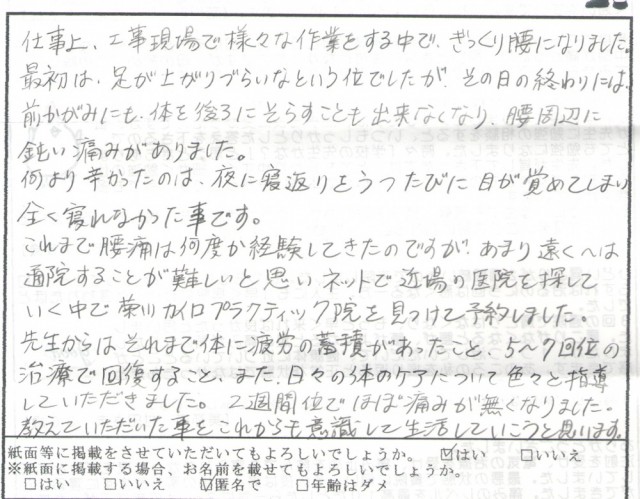 仕事上、工事現場で様々な作業をする中で、ぎっくり腰になりました。
最初は、足が上がりづらいなという位でしたが、その日の終わりには、
前かがみにも、体を後ろにそらすことも出来なくなり、腰周辺に
鈍い痛みがありました。
何より辛かったのは、夜に寝返りをうつたびに目が覚めてしまい
全く寝れなかった事です。
これまで腰痛は何度か経験してきたのですが、あまり遠くへは
通院することが難しいと思いネットで近場の医院を探して
いく中で 栄川カイロプラクティック院を見つけて予約しました。
先生からはそれまで体に疲労の蓄積があったこと、5〜7回位の
治療で回復すること、また、日々の体のケアについて色々と指導
していただきました。2週間位でほぼ痛みが無くなりました。
教えていただいた事をこれからも意識して生活していこうと思います。
紙面等に掲載をさせていただいてもよろしいでしょうか。 ☑はい □いいえ
※紙面に掲載する場合、お名前を載せてもよろしいでしょうか。
□はい □いいえ ☑匿名で □年齢はダメ